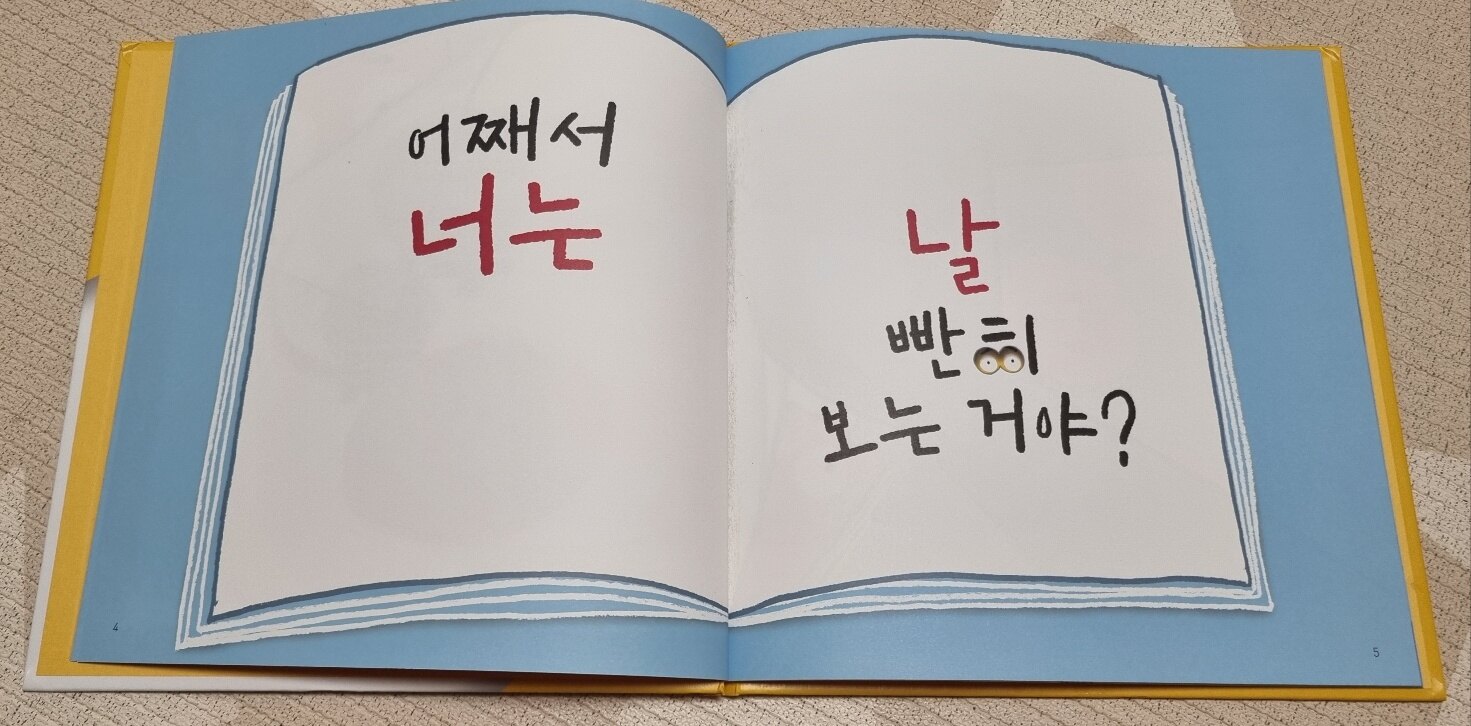 어째서
너는
날
빤히
보는 거야?
4
5